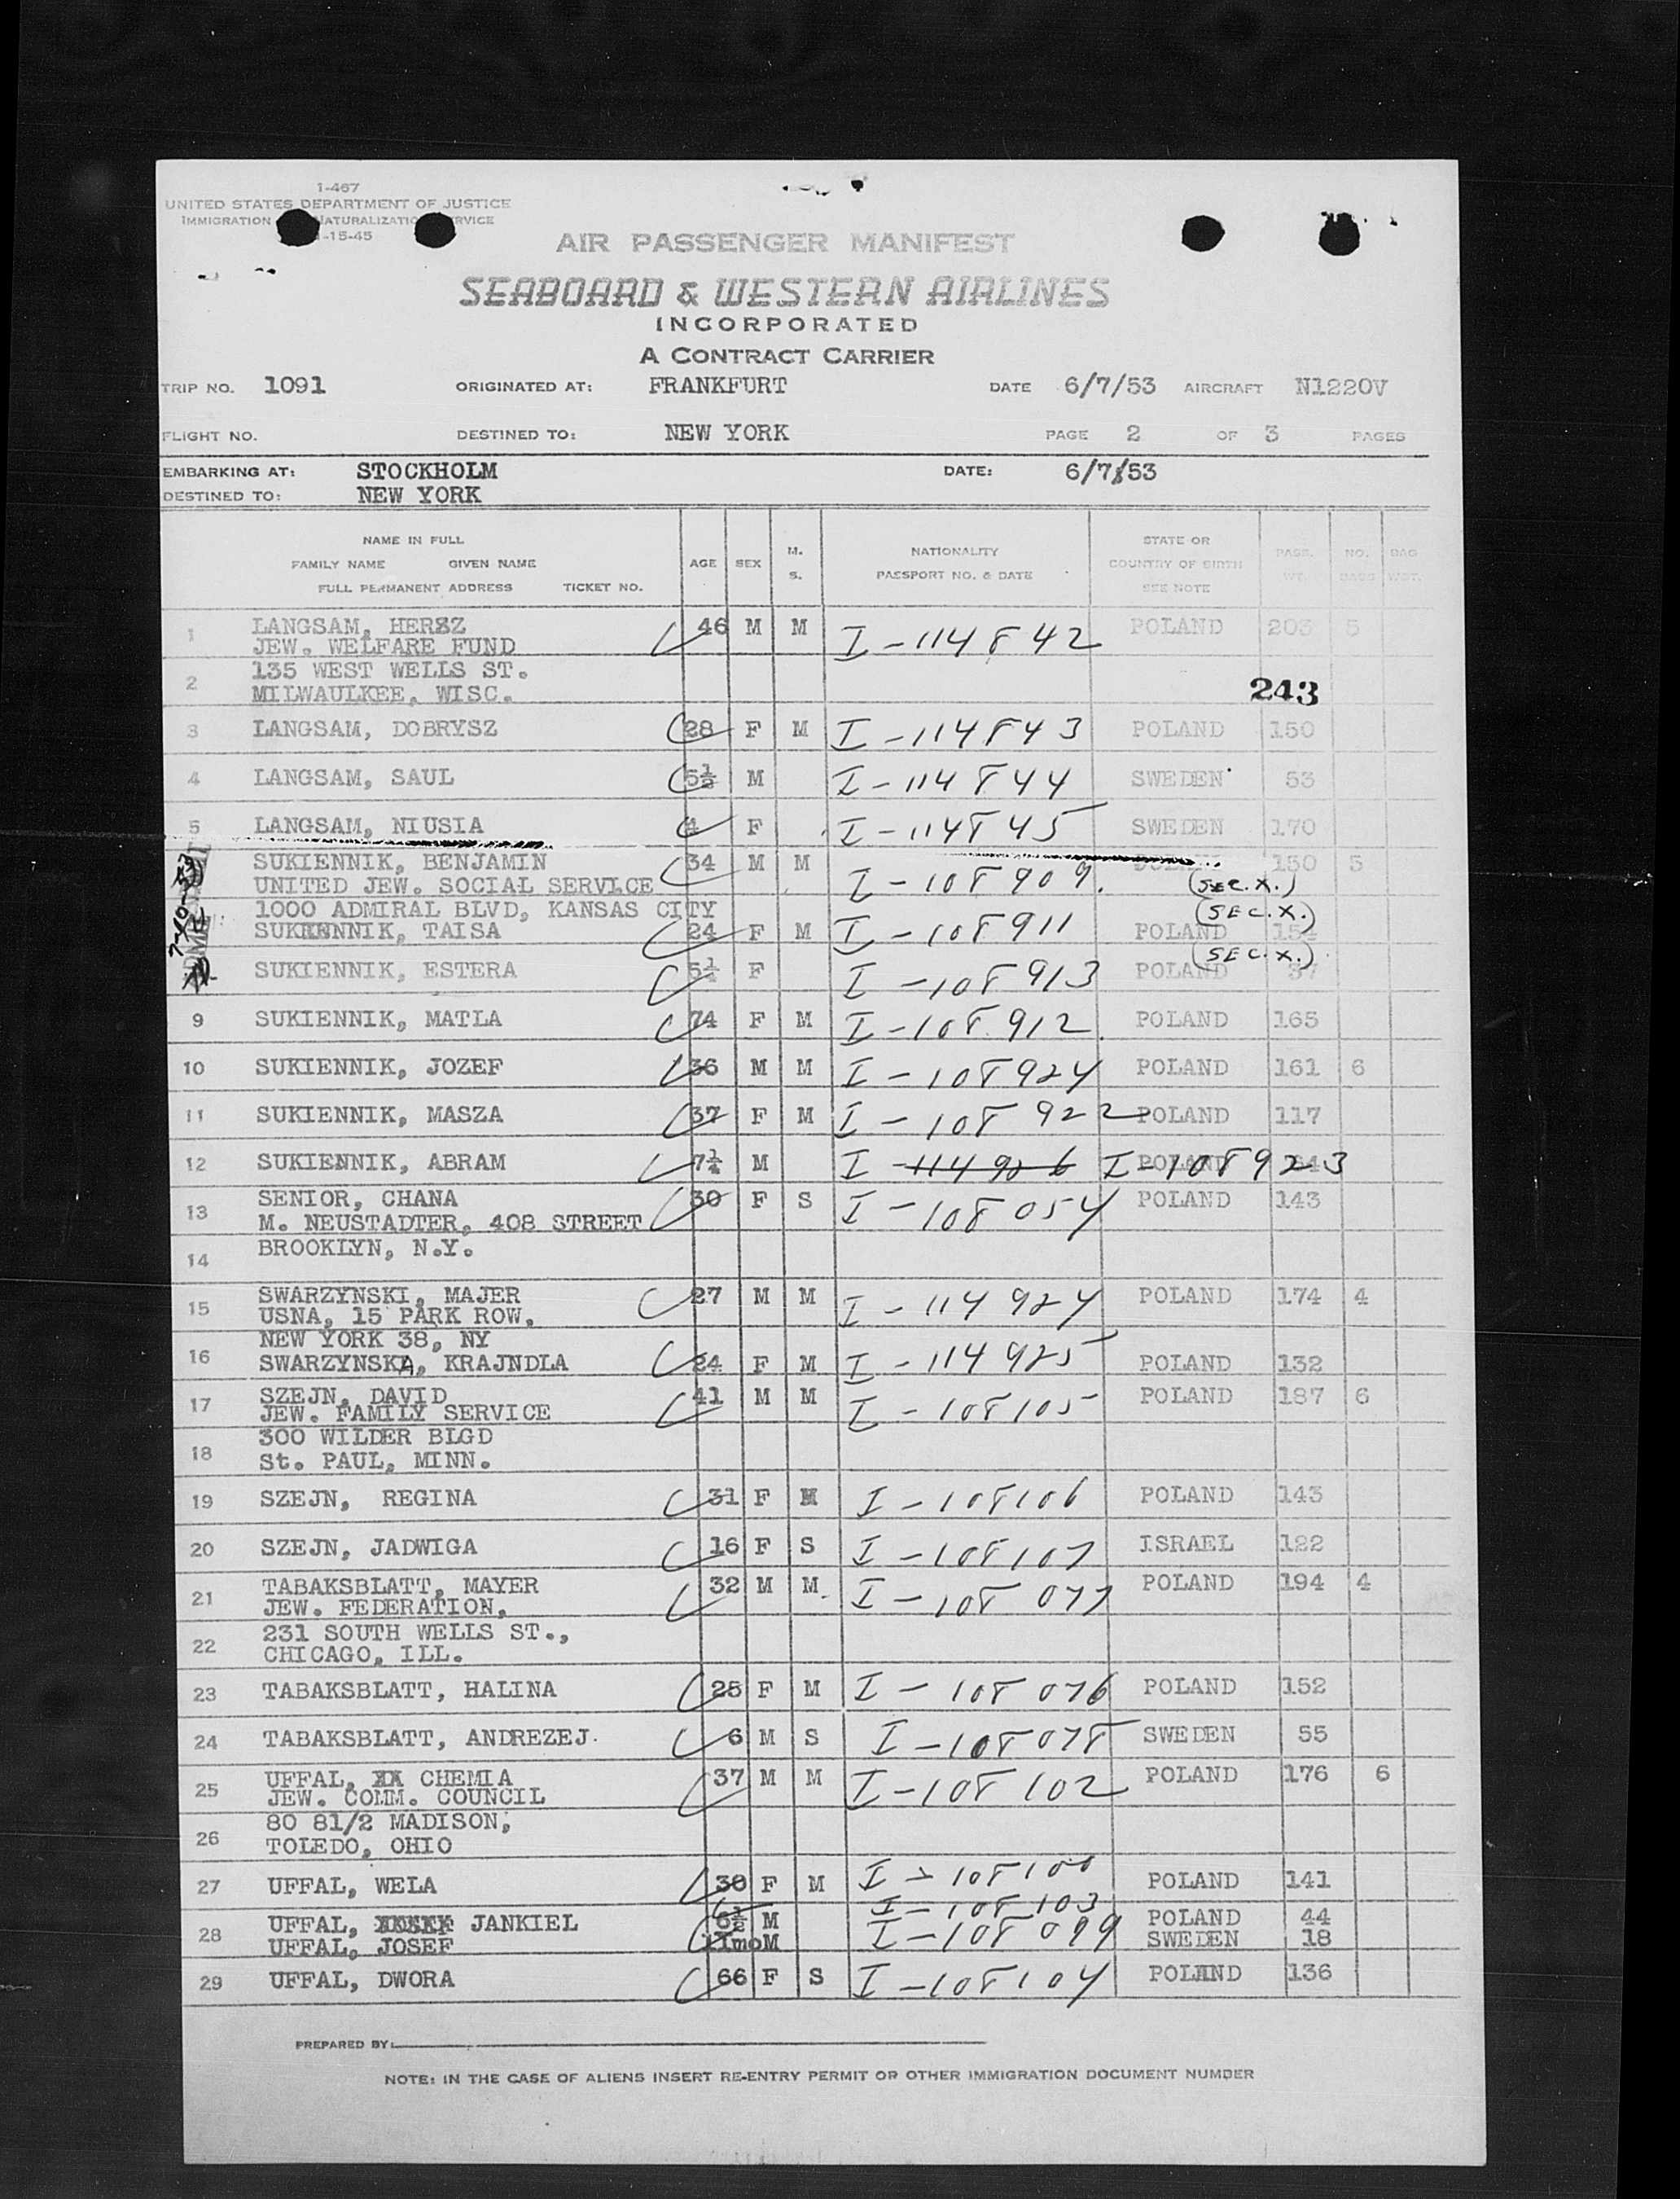 1-467
UNITED STATES DEPARTMENT OF JUSTICE
IMMIGRATION NATURALIZATION SERVICE
-15-45
AIR PASSENGER MANIFEST
SEABOARD & WESTERN AIRLINES
INCORPORATED
A CONTRACT CARRIER
TRIP NO. 1091 ORIGINATED AT: FRANKFURT DATE 6/7/53 AIRCRAFT N1220V
FLIGHT NO. DESTINED TO: NEW YORK PAGE 2 OF 3 PAGES
EMBARKING AT: STOCKHOLM DATE: 6/7/53
DESTINED TO: NEW YORK
NAME IN FULL
FAMILY NAME GIVEN NAME
FULL PERMANENT ADDRESS TICKET NO.
AGE SEX M. S.
NATIONALITY
PASSPORT NO. & DATE
STATE OR
COUNTRY OF BIRTH
SEE NOTE
PASS. WT. NO. BAGS BAG WGT.
1 LANGSAM, HERSZ 46 M M I-114842 POLAND 203 5
JEW. WELFARE FUND
2 135 WEST WELLS ST.
MILWAULKEE, WISC. 243
3 LANGSAM, DOBRYSZ 28 F M I-114843 POLAND 150
4 LANGSAM, SAUL 5½ M I-114844 SWEDEN 53
5 LANGSAM, NIUSIA F I-114845 SWEDEN 170
SUKIENNIK, BENJAMIN 34 M M I-108909. 150 5
UNITED JEW. SOCIAL SERVICE (SEC.X.)
1000 ADMIRAL BLVD, KANSAS CITY (SEC.X.)
SUKIENNIK, TAISA 24 F M I-108911 POLAND
(SEC.X.)
SUKIENNIK, ESTERA 5¼ F I-108913 POLAND 37
9 SUKIENNIK, MATLA 74 F M I-108912 POLAND 165
10 SUKIENNIK, JOZEF 36 M M I-108924 POLAND 161 6
11 SUKIENNIK, MASZA 37 F M I-108922 POLAND 117
12 SUKIENNIK, ABRAM 7¼ M I-114926 I-108923 POLAND
13 SENIOR, CHANA 30 F S I-108054 POLAND 143
M. NEUSTADTER, 408 STREET
14 BROOKLYN, N.Y.
15 SWARZYNSKI, MAJER 27 M M I-114924 POLAND 174 4
USNA, 15 PARK ROW,
NEW YORK 38, NY
16 SWARZYNSKA, KRAJNDLA 24 F M I-114925 POLAND 132
17 SZEJN, DAVID 41 M M I-108105 POLAND 187 6
JEW. FAMILY SERVICE
18 300 WILDER BLGD
St. PAUL, MINN.
19 SZEJN, REGINA 31 F M I-108106 POLAND 143
20 SZEJN, JADWIGA 16 F S I-108107 ISRAEL 122
21 TABAKSBLATT, MAYER 32 M M I-108077 POLAND 194 4
JEW. FEDERATION,
22 231 SOUTH WELLS ST.,
CHICAGO, ILL.
23 TABAKSBLATT, HALINA 25 F M I-108076 POLAND 152
24 TABAKSBLATT, ANDREZEJ 6 M S I-108078 SWEDEN 55
25 UFFAL, XX CHEMIA 37 M M I-108102 POLAND 176 6
JEW. COMM. COUNCIL
26 80 81/2 MADISON,
TOLEDO, OHIO
27 UFFAL, WELA 38 F M I-108100 POLAND 141
28 UFFAL, JANKIEL 6½ M I-108103 POLAND 44
UFFAL, JOSEF 11mo M I-108099 SWEDEN 18
29 UFFAL, DWORA 66 F S I-108104 POLAND 136
PREPARED BY:
NOTE: IN THE CASE OF ALIENS INSERT RE-ENTRY PERMIT OR OTHER IMMIGRATION DOCUMENT NUMBER